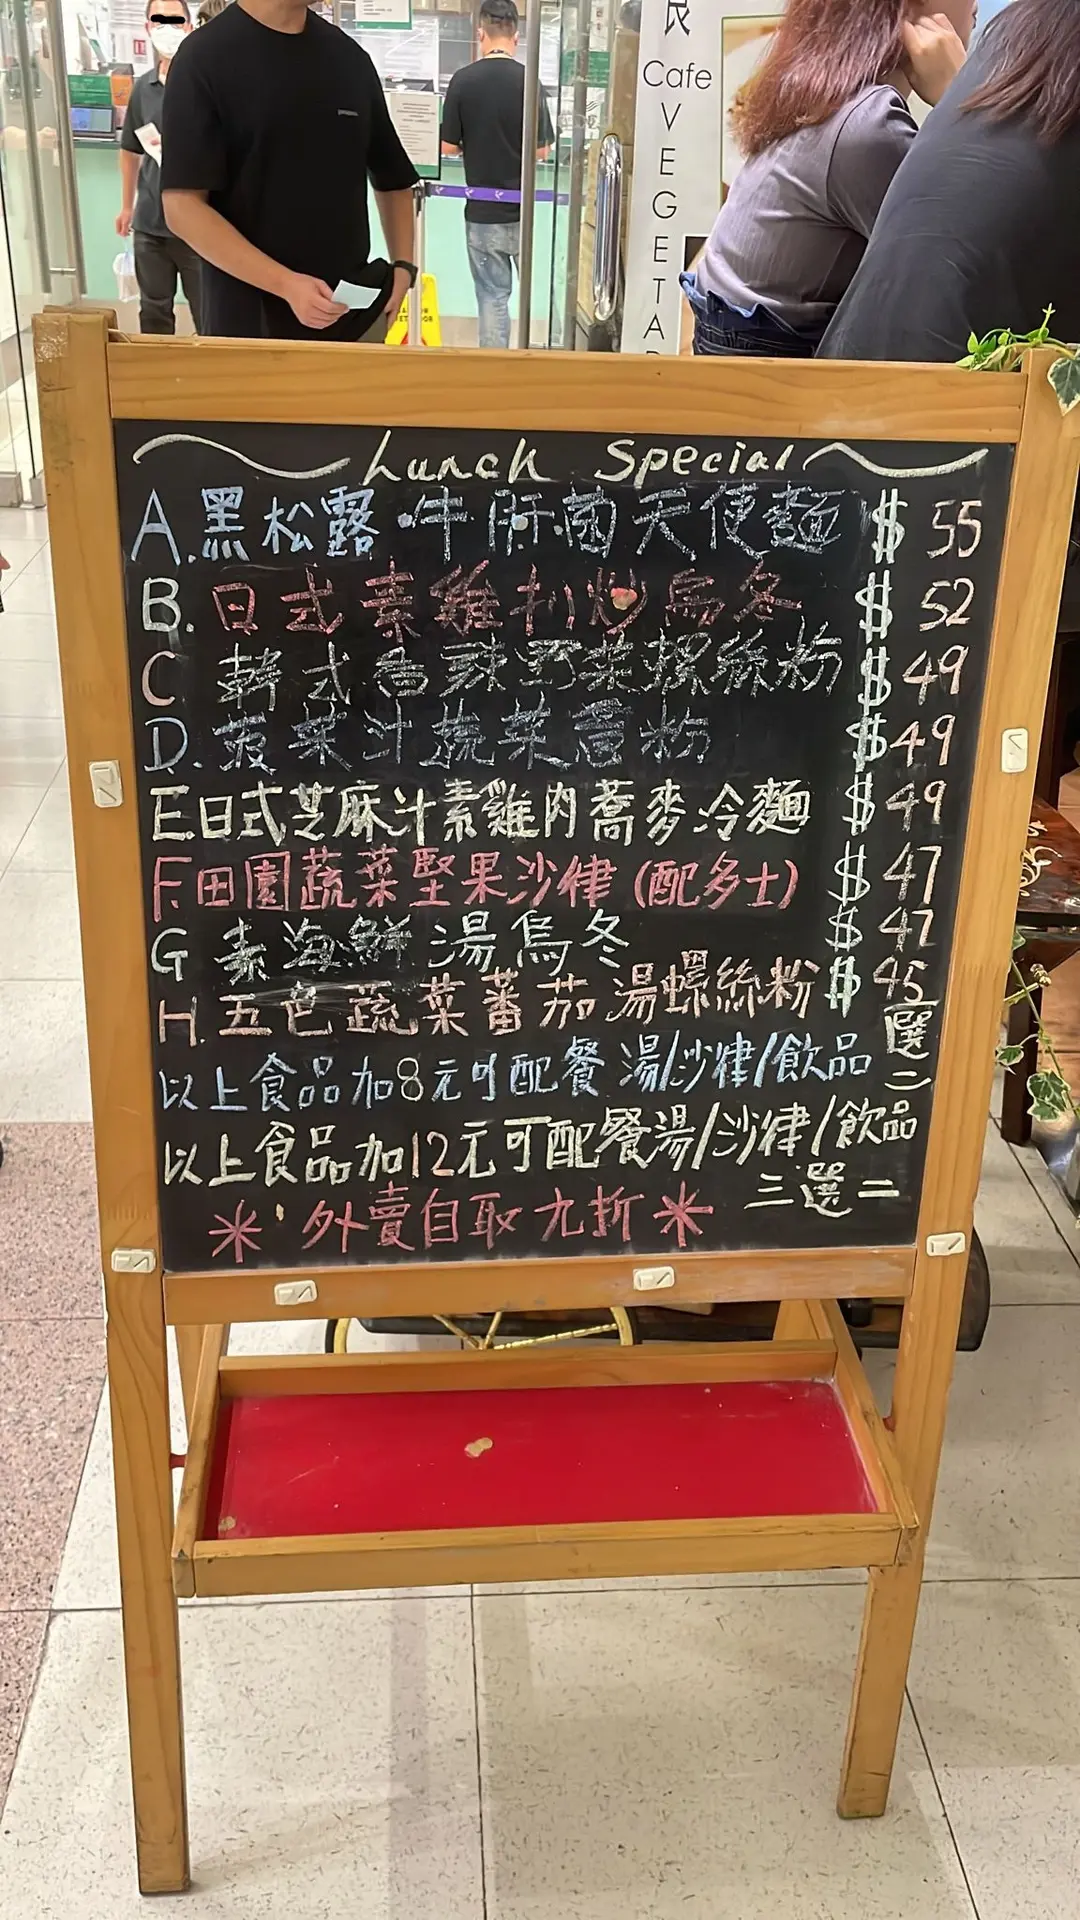 良
Cafe
VEGETA
Lunch Special
A.黑松露·牛肝菌天使麵 $ 55
B.日式素雞扒炒烏冬 $ 52
C 韓式香辣野菜螺絲粉 $ 49
D.菠菜汁蔬菜意粉 $ 49
E.日式芝麻汁素雞肉蕎麥冷麵 $ 49
F.田園蔬菜堅果沙律(配多士) $ 47
G 素海鮮湯烏冬 $ 47
H.五色蔬菜蕃茄湯螺絲粉 $ 45
以上食品加8元可配餐湯/沙律/飲品 選二
以上食品加12元可配餐湯/沙律/飲品
三選二
* 外賣自取九折 *